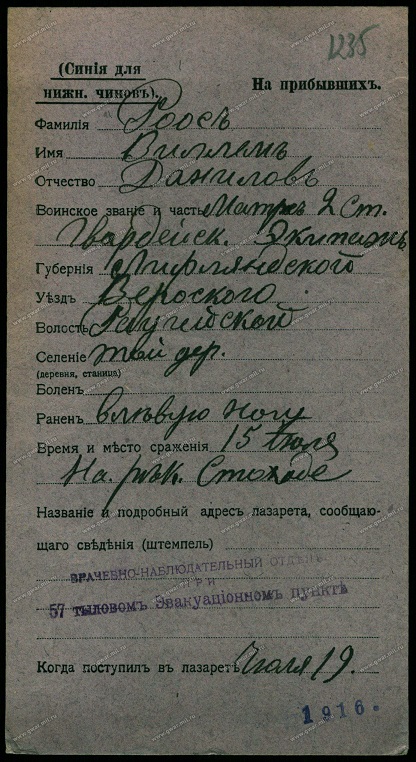 1235
(Синія для
нижн. чиновъ).
На прибывшихъ.
Фамилія Роосъ
Имя Виллемъ
Отчество Даниловъ
Воинское званіе и часть Матрос 2 ст.
Гвардейск. Экипажъ
Губернія Лифляндского
Уѣздъ Вероского
Волость
Селеніе той дер.
(деревня, станица)
Боленъ
Раненъ в лѣвую ногу
Время и мѣсто сраженія 15 Іюля
На рѣк. Стоходе
Названіе и подробный адресъ лазарета, сообщаю-
щаго свѣдѣнія (штемпель)
ВРАЧЕБНО-НАБЛЮДАТЕЛЬНЫЙ ОТДѢЛЪ
ПРИ
57 тыловомъ Эвакуаціонномъ пунктѣ
Когда поступилъ въ лазаретъ Іюля 19.
1916.